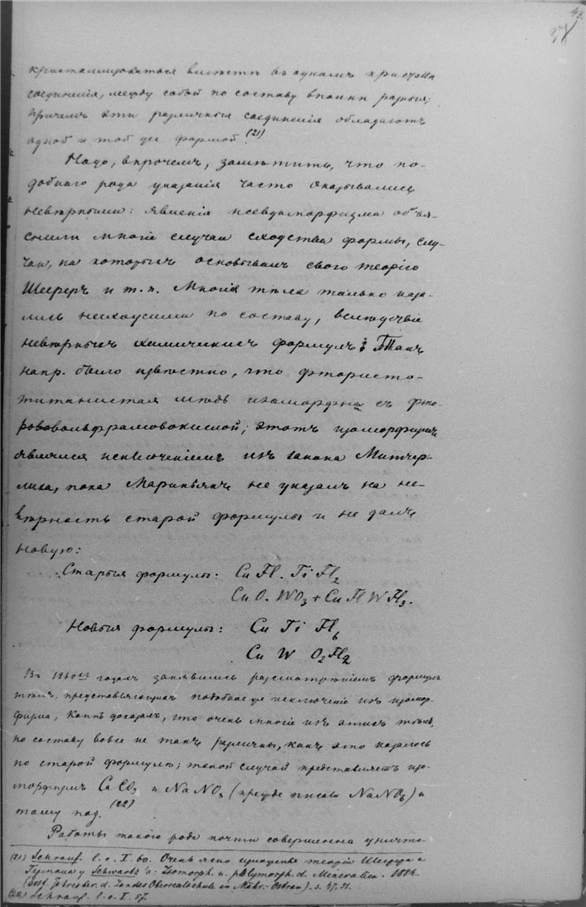 37
кристаллироваться вместе въ одномъ кристалле
соединенія, между собой по составу вполнѣ разныя,
причемъ эти различныя соединенія обладаютъ
одной и той же формой. (21)
Надо, впрочемъ, замѣтить, что по-
добнаго рода указанія часто оказывались
невѣрными: явленія псевдоморфизма объя-
снили многіе случаи сходства формы, слу-
чаи, на которыхъ основывалъ свою теорію
Шерреръ и т. п. Многія тѣла только каза-
лись несхожими по составу, вслѣдствіе
невѣрныхъ химическихъ формулъ; Такъ
напр. было извѣстно, что фтористо-
титанистая мѣдь изоморфна съ фто-
рововольфрамовокислой; этотъ изоморфизмъ
являлся исключеніемъ изъ закона Митчер-
лиха, пока Мариньякъ не указалъ на не-
вѣрность старой формулы и не далъ
новую:
Старыя формулы: Cu Fl. Ti Fl2
Cu O. WO3 + Cu Fl W Fl3.
Новыя формулы: Cu Ti Fl6
Cu W O2 Fl2
Въ годахъ занялись разсмотрѣніемъ формулъ
тѣлъ, представляющихъ подобное же исключеніе изъ изомор-
физма, Коппъ доказалъ, что очень многіе изъ этихъ тѣлъ,
по составу вовсе не такъ различны, какъ это казалось
по старой формулѣ; такой случай представляетъ изо-
морфизмъ CaCO3 и NaNO3 (прежде писали NaNO6) и
тому под. (22)
Работы такого рода почти совершенно уничто-
(21) Schrauf. l. c. I. 60. Очень ясно изложена теорія Шеерера и
Германа у Schwartz'a: Isomorph. u. polymorph. d. Mineralien. 188
d. Landes Oberrealschule in Mähr. Ostrau). s.
(22) Schrauf. l. c. I. 57.